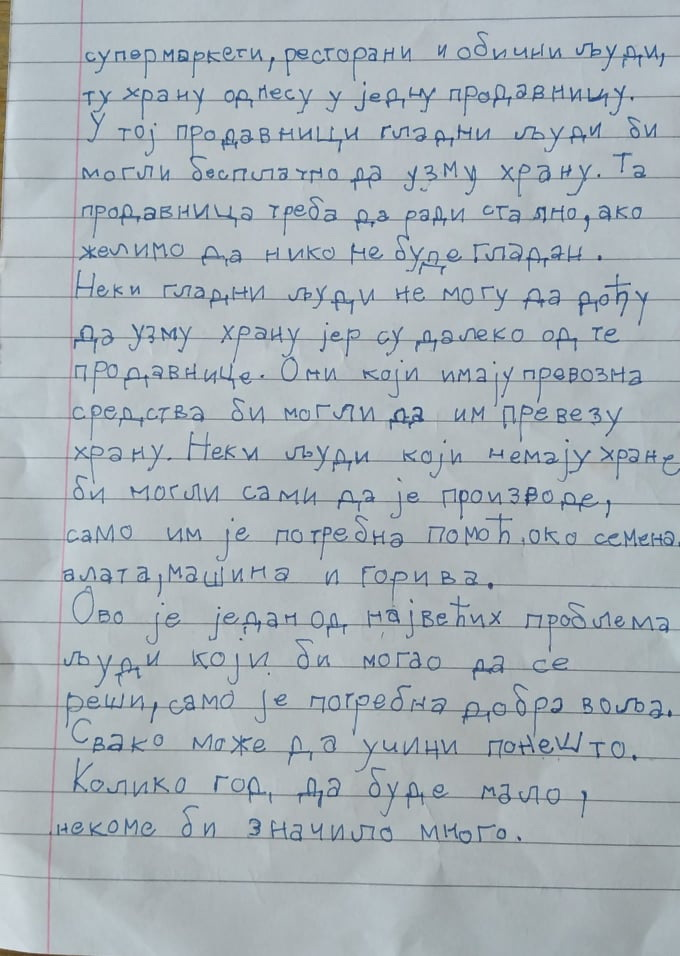 супермаркети, ресторани и обични људи,
ту храну однесу у једну продавницу.
У тој продавници гладни људи би
могли бесплатно да узму храну. Та
продавница треба да ради стално, ако
желимо да нико не буде гладан.
Неки гладни људи не могу да дођу
да узму храну јер су далеко од те
продавнице. Они који имају превозна
средства би могли да им превезу
храну. Неки људи који немају хране
би могли сами да је производе,
само им је потребна помоћ око семена
алата, машина и горива.
Ово је један од највећих проблема
људи који би могао да се
реши, само је потребна добра воља.
Свако може да учини понешто.
Колико год да буде мало,
некоме би значило много.